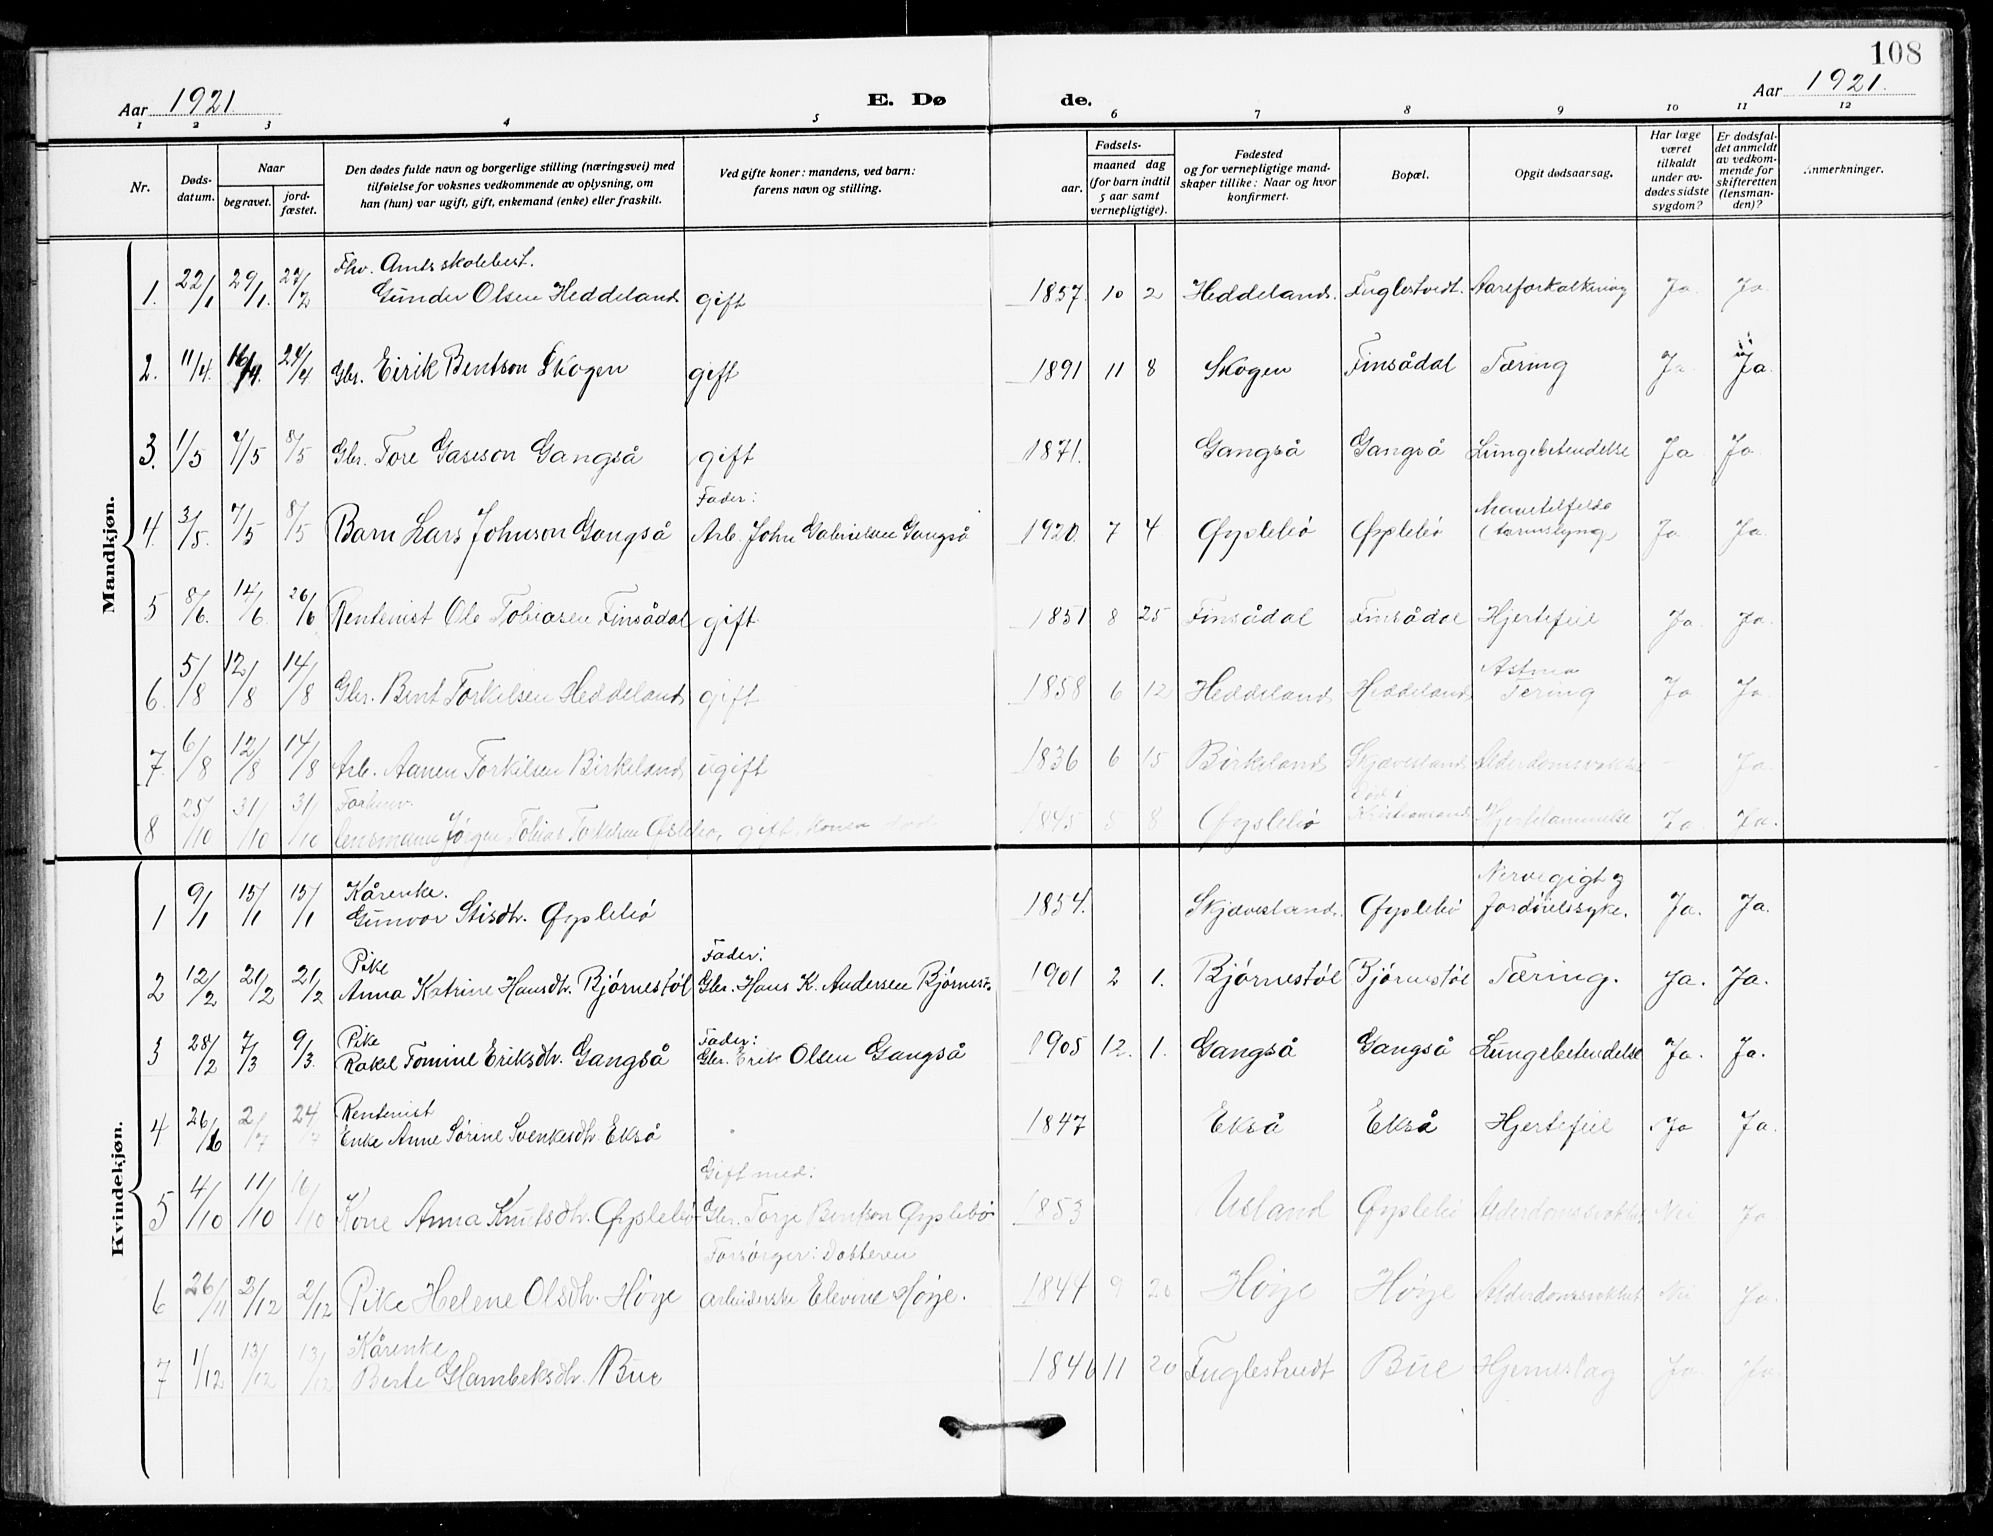 108
Aar 1921.
E. Dø
de.
Aar 1921.
1 2 3 4 5 6 7 8 9 10 11 12
Nr.
Døds-
datum.
Naar
begravet.
jord-
fæstet.
Den dødes fulde navn og borgerlige stilling (næringsvei) med
tilføielse for voksnes vedkommende av oplysning, om
han (hun) var ugift, gift, enkemand (enke) eller fraskilt.
Ved gifte koner: mandens, ved barn:
farens navn og stilling.
Fødsels-
aar.
maaned dag
(for barn indtil
5 aar samt
vernepligtige).
Fødested
og for vernepligtige mand-
skaper tillike: Naar og hvor
konfirmert.
Bopæl.
Opgit dødsaarsag.
Har læge
været
tilkaldt
under av-
dødes sidste
sygdom?
Er dødsfal-
det anmeldt
av vedkom-
mende for
skifteretten
(lensman-
den)?
Anmerkninger.
Mandkjøn.
Fhv. Amtsskolebest.
1. 22/1 29/1. 27/2 Gunder Olsen Heddeland gift 1857. 10 2 Heddeland. Fuglestvedt. Aareforkalkning Ja Ja
2. 11/4. 16/4. 24/4 Gbr. Eirik Bentson Skogen gift 1891 11 8 Skogen Finsådal Tæring Ja Ja.
3. 1/5 7/5 8/5 Gbr. Tore Gaseson Gangså gift 1871. Gangså Gangså Lungebetendelse Ja Ja.
Fader:
4. 3/5. 7/5 8/5 Barn Lars Johnson Gangså Arb. John Gabrielsen Gangså 1920. 7 4 Øyslebø Øyslebø (tarmslyng) Ja Ja.
5 8/6. 14/6. 26/6 Rentenist Ole Tobiasen Finsådal gift 1851 8 25 Finsådal Finsådal Hjertefeil Ja. Ja.
Astma
6. 5/8 12/8 14/8 Gbr. Bent Torkilsen Heddeland gift 1858 6 12 Heddeland Heddeland Tæring Ja Ja.
7. 6/8 12/8 14/8 Arb. Aanen Torkilsen Birkeland ugift 1836 6 15 Birkeland Skjævesland Alderdomssvakhet – Ja.
Forhenv. Død i
8 25/10 31/10 31/10 lensmann Jørgen Tobias Torkelsen Øslebø, gift, konen død 1845 5 8 Øyslebø Kristiansand Hjertelammelse Ja Ja.
Kvindekjøn.
Kårenke. Nervegigt og
1 9/1 15/1 15/1 Gunvor Stisdtr. Øyslebø 1854. Skjævesland. Øyslebø fordøielssyke. Ja. Ja.
Pike Fader:
2 12/2 21/2 21/2 Anna Katrine Hansdtr. Bjørnestøl Gbr. Hans K. Andersen Bjørnest. 1901 2 1. Bjørnestøl Bjørnestøl Tæring. Ja. Ja.
Pike Fader:
3 28/2 7/3 9/3. Rakel Tomine Eriksdtr. Gangså Gbr. Erik Olsen Gangså 1905 12. 1. Gangså Gangså Lungebetendelse Ja. Ja.
Rentenist
4 26/6 2/7 24/7 Enke Anne Sørine Svenkesdtr. Ekså 1847 Ekså Ekså Hjertefeil Ja Ja.
Gift med:
5 4/10 11/10 16/10 Kone Anna Knutsdtr. Øyslebø Gbr. Torje Bentson Øyslebø 1853 Usland Øyslebø Alderdomssvakhet Nei Ja
Forsørger: Datteren
6 26/11 2/12 2/12 Pike Helene Olsdtr. Høye arbeiderske Elevine Høye. 1844 9 20 Høye Høye Alderdomssvakhet Nei Ja.
Kårenke
7 1/12 13/12 13/12 Berte Glambeksdtr. Bue 1846 11 20 Fuglestvedt Bue Hjerneslag Ja. Ja.